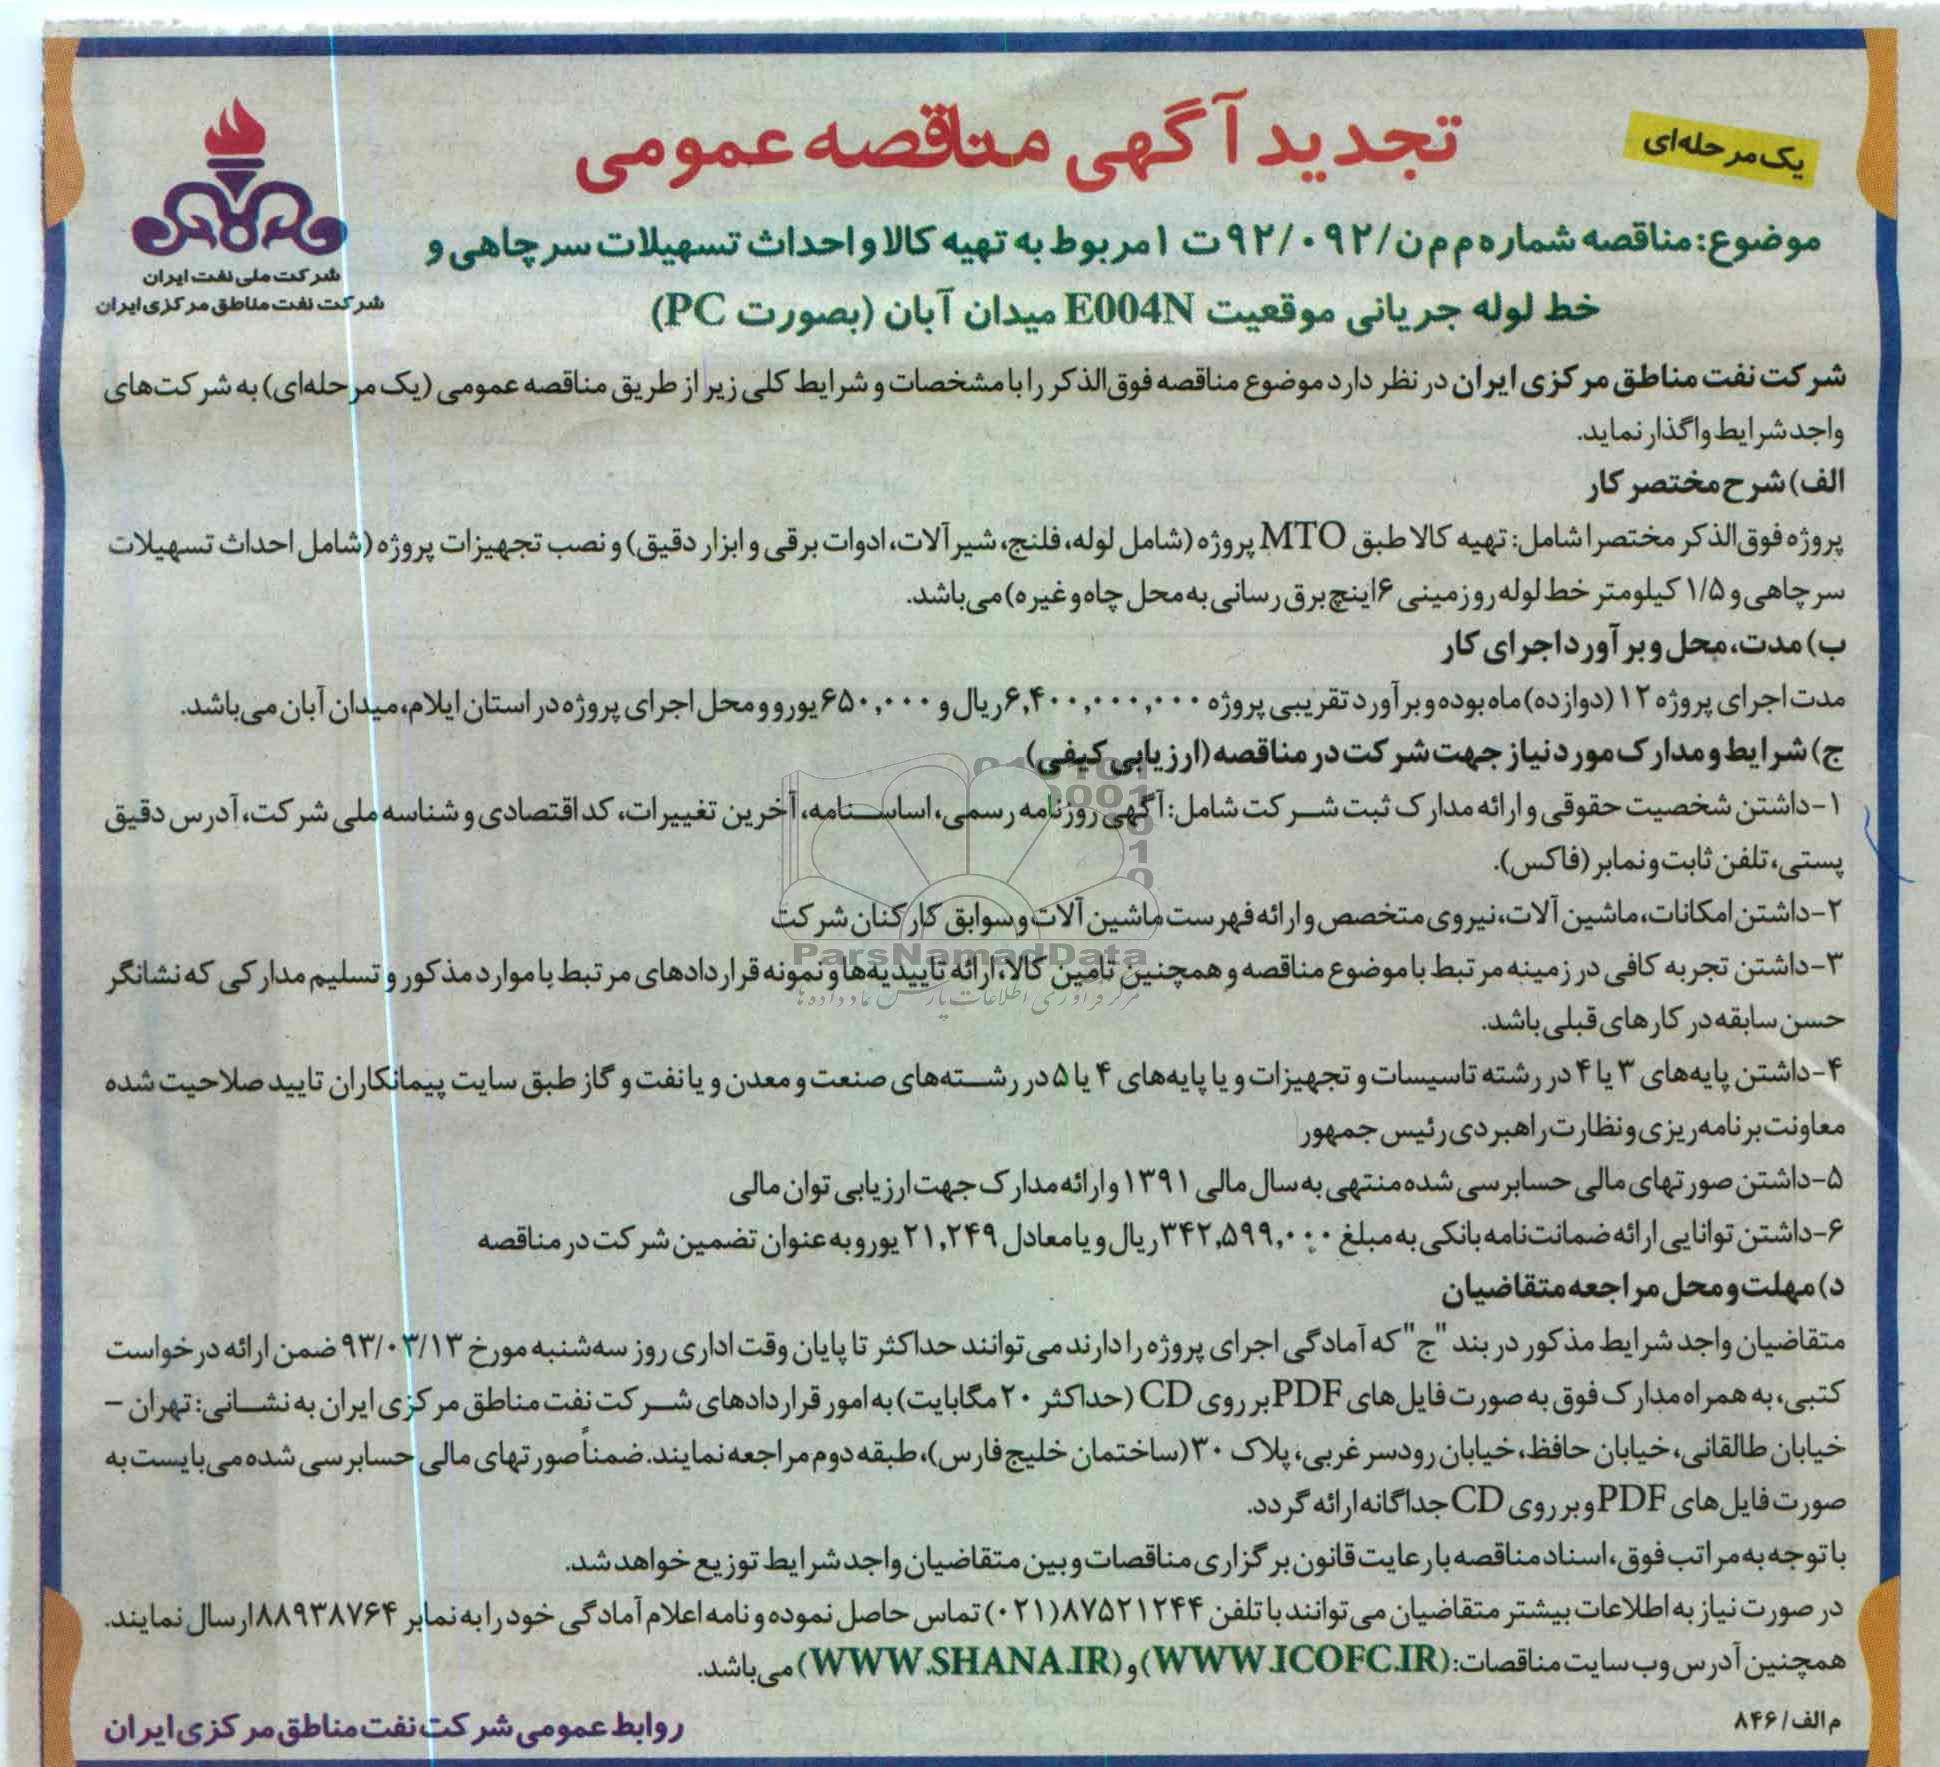 یک مرحله‌ای
تجدید آگهی مناقصه عمومی
شرکت ملی نفت ایران
شرکت نفت مناطق مرکزی ایران
موضوع: مناقصه شماره م م ن/۹۲/۰۹۲ت ۱ مربوط به تهیه کالا و احداث تسهیلات سرچاهی و
خط لوله جریانی موقعیت E004N میدان آبان (بصورت PC)
شرکت نفت مناطق مرکزی ایران در نظر دارد موضوع مناقصه فوق‌الذکر را با مشخصات و شرایط کلی زیر از طریق مناقصه عمومی (یک مرحله‌ای) به شرکت‌های
واجد شرایط واگذار نماید.
الف) شرح مختصر کار
پروژه فوق‌الذکر مختصرا شامل: تهیه کالا طبق MTO پروژه (شامل لوله، فلنج، شیرآلات، ادوات برقی و ابزار دقیق) و نصب تجهیزات پروژه (شامل احداث تسهیلات
سرچاهی و ۱/۵ کیلومتر خط لوله روزمینی ۶ اینچ برق رسانی به محل چاه و غیره) می‌باشد.
ب) مدت، محل و برآورد اجرای کار
مدت اجرای پروژه ۱۲ (دوازده) ماه بوده و برآورد تقریبی پروژه ۶,۴۰۰,۰۰۰,۰۰۰ ریال و ۶۵۰,۰۰۰ یورو و محل اجرای پروژه در استان ایلام، میدان آبان می‌باشد.
ج) شرایط و مدارک مورد نیاز جهت شرکت در مناقصه (ارزیابی کیفی)
۱- داشتن شخصیت حقوقی و ارائه مدارک ثبت شرکت شامل: آگهی روزنامه رسمی، اساسنامه، آخرین تغییرات، کد اقتصادی و شناسه ملی شرکت، آدرس دقیق
پستی، تلفن ثابت و نمابر (فاکس).
۲- داشتن امکانات، ماشین آلات، نیروی متخصص و ارائه فهرست ماشین آلات و سوابق کارکنان شرکت
ParsNamadData
۳- داشتن تجربه کافی در زمینه مرتبط با موضوع مناقصه و همچنین تامین کالا، ارائه تاییدیه‌ها و نمونه قراردادهای مرتبط با موارد مذکور و تسلیم مدارکی که نشانگر
مرکز فرآوری اطلاعات پارس نماد داده ها
حسن سابقه در کارهای قبلی باشد.
۴- داشتن پایه‌های ۳ یا ۴ در رشته تاسیسات و تجهیزات و یا پایه‌های ۴ یا ۵ در رشته‌های صنعت و معدن و یا نفت و گاز طبق سایت پیمانکاران تایید صلاحیت شده
معاونت برنامه ریزی و نظارت راهبردی رئیس جمهور
۵- داشتن صورتهای مالی حسابرسی شده منتهی به سال مالی ۱۳۹۱ و ارائه مدارک جهت ارزیابی توان مالی
۶- داشتن توانایی ارائه ضمانت‌نامه بانکی به مبلغ ۳۴۲,۵۹۹,۰۰۰ ریال و یا معادل ۲۱,۲۴۹ یورو به عنوان تضمین شرکت در مناقصه
د) مهلت و محل مراجعه متقاضیان
متقاضیان واجد شرایط مذکور در بند "ج" که آمادگی اجرای پروژه را دارند می‌توانند حداکثر تا پایان وقت اداری روز سه‌شنبه مورخ ۹۳/۰۳/۱۳ ضمن ارائه درخواست
کتبی، به همراه مدارک فوق به صورت فایل‌های PDF بر روی CD (حداکثر ۲۰ مگابایت) به امور قراردادهای شرکت نفت مناطق مرکزی ایران به نشانی: تهران –
خیابان طالقانی، خیابان حافظ، خیابان رودسر غربی، پلاک ۳۰ (ساختمان خلیج فارس)، طبقه دوم مراجعه نمایند. ضمناً صورتهای مالی حسابرسی شده می‌بایست به
صورت فایل‌های PDF و بر روی CD جداگانه ارائه گردد.
با توجه به مراتب فوق، اسناد مناقصه با رعایت قانون برگزاری مناقصات و بین متقاضیان واجد شرایط توزیع خواهد شد.
در صورت نیاز به اطلاعات بیشتر متقاضیان می‌توانند با تلفن ۸۷۵۲۱۲۴۴ (۰۲۱) تماس حاصل نموده و نامه اعلام آمادگی خود را به نمابر ۸۸۹۳۸۷۶۴ ارسال نمایند.
همچنین آدرس وب سایت مناقصات: (WWW.ICOFC.IR) و (WWW.SHANA.IR) می‌باشد.
م الف/۸۴۶
روابط عمومی شرکت نفت مناطق مرکزی ایران